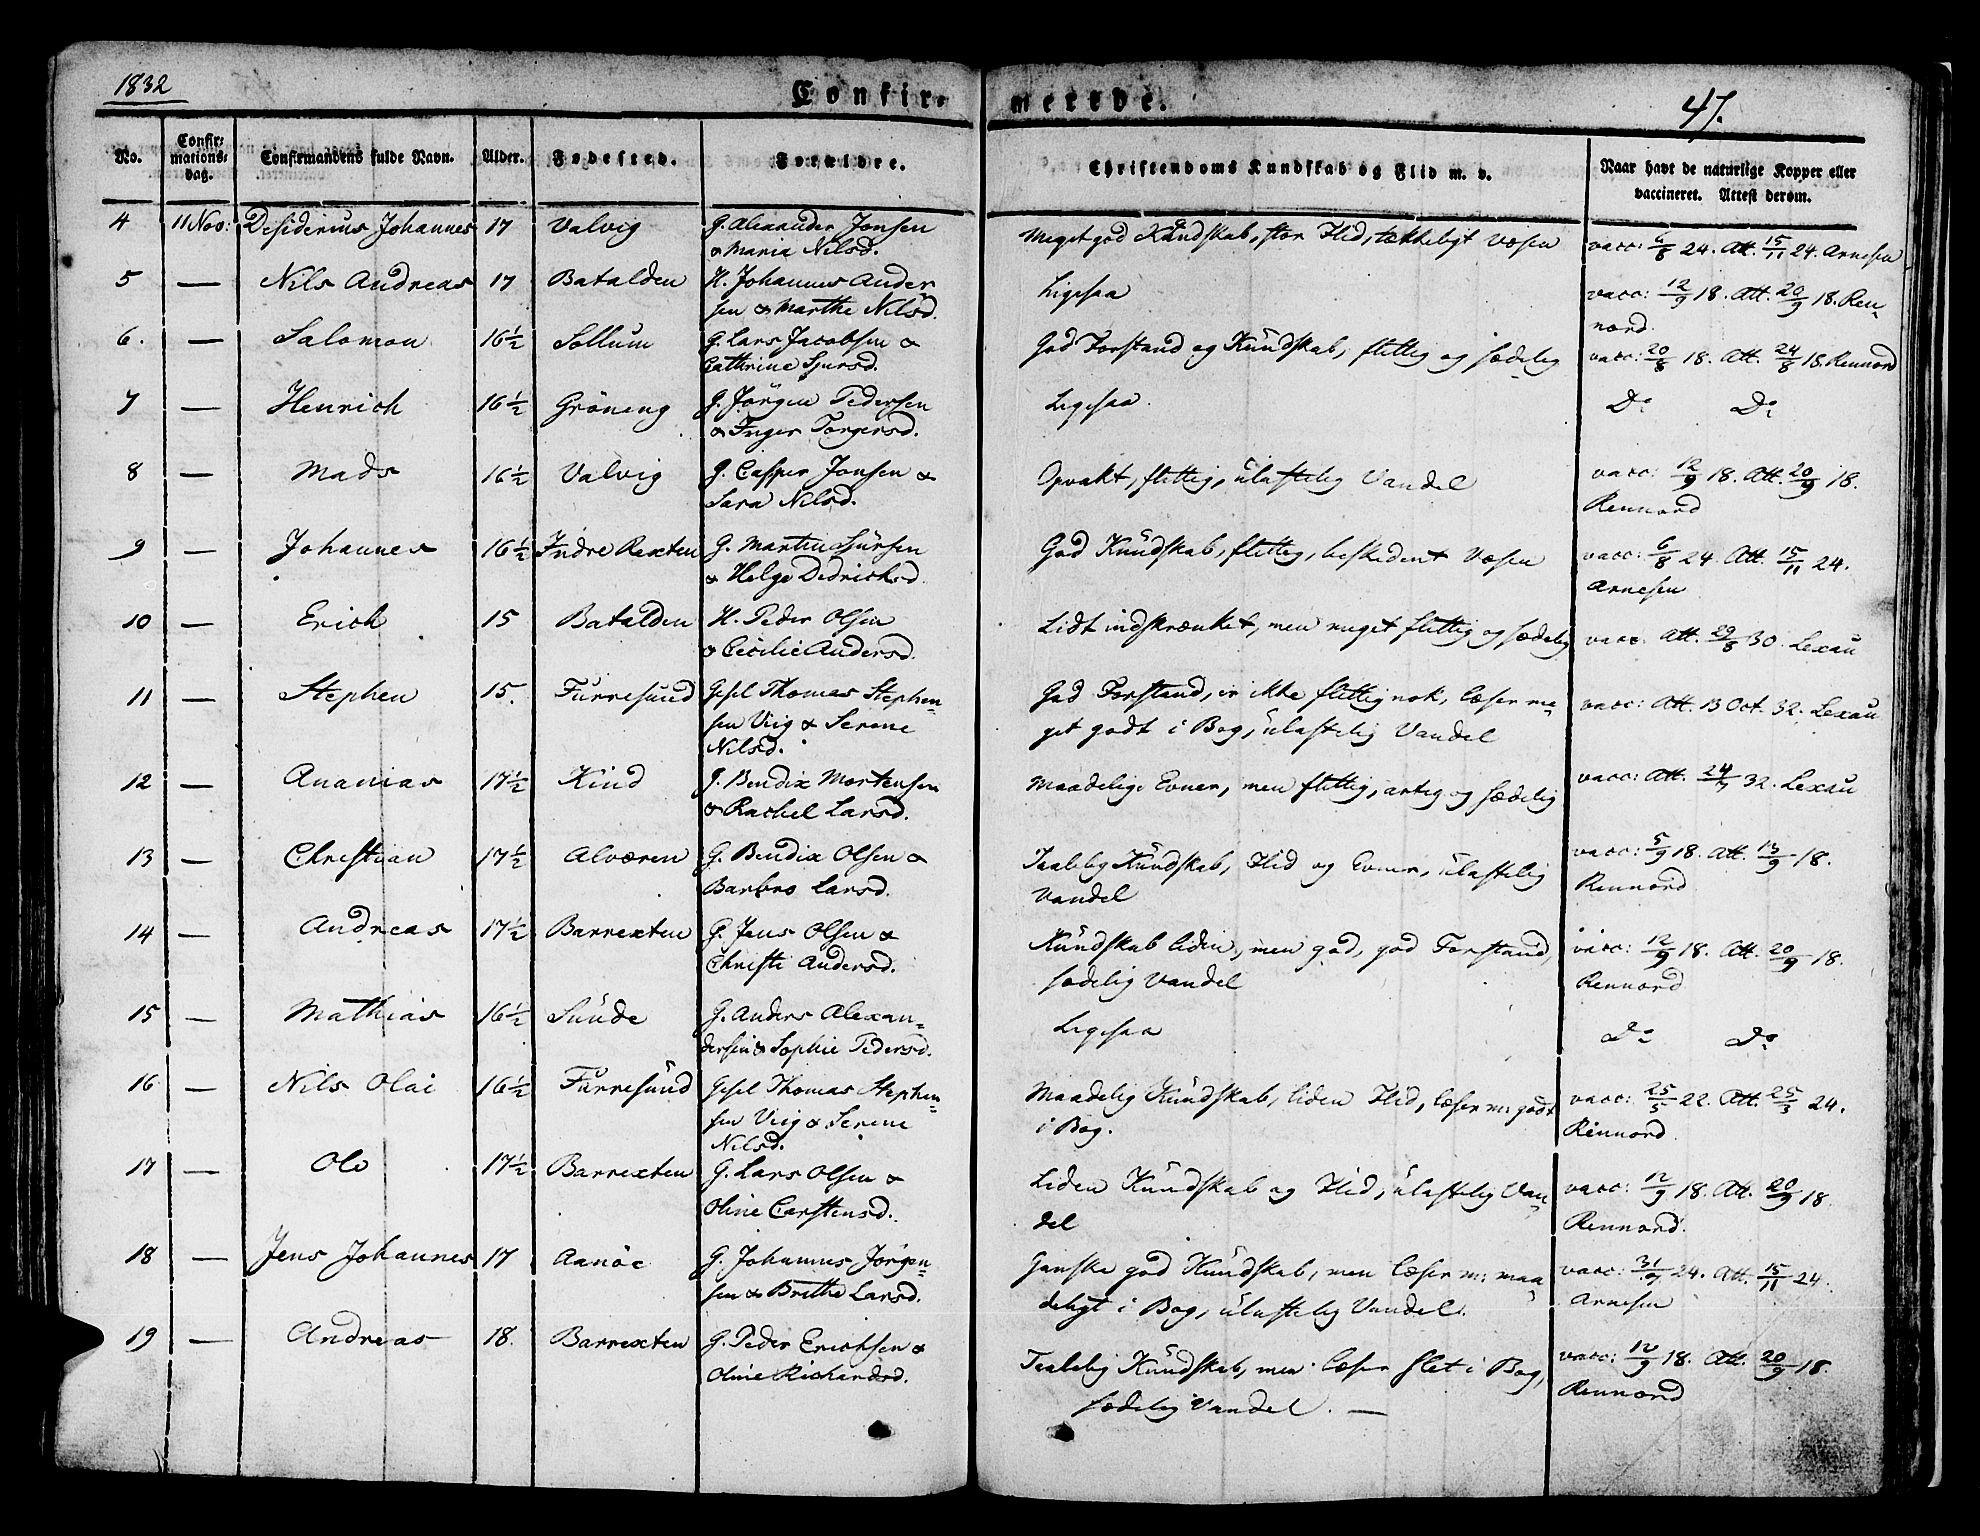 1832
Confir-
merede.
47.
No.
Confir-
mations-
dag.
Confirmandens fulde Navn.
Alder.
Fødested.
Forældre.
Christendoms Kundskab og Flid m. v.
Naar havt de naturlige Kopper eller
vaccineret. Attest derom.
4 11 Nov: Desiderius Johannes 17 Valvig G. Alexander Jonsen
& Maria Nilsd.
Meget god Kundskab, stor Flid, tækkeligt Væsen
vacc: 6/8 24. Att. 15/11 24. Arnesen
5 — Nils Andreas 17 Batalden H. Johannes Ander
sen & Marthe Nilsd.
Ligesaa
vacc: 12/9 18. Att. 20/9 18. Ren-
nord.
6. — Salomon 16½ Sollum G. Lars Jacobsen &
Cathrine Sjursd.
God Forstand og Kundskab, flittig og sædelig
vacc: 20/8 18. Att. 24/8 18. Rennord
7 — Henrich 16½ Gröneng G. Jörgen Pedersen
& Inger Torgersd.
Ligesaa.
Do Do
8 — Mads 16½ Valvig G. Casper Jonsen &
Sara Nilsd.
Opvakt, flittig, ulastelig Vandel
vacc: 12/9 18. Att. 20/9 18.
Rennord
9 — Johannes 16½ Indre Rexten G. Martin Sjursen
& Helge Didrichsd.
God Kundskab, flittig, beskedent Væsen
vacc: 6/8 24. Att. 15/11 24.
Arnesen
10 — Erich 15 Batalden H. Peder Olsen
& Cecilie Andersd.
Lidt indskrænket, men meget flittig og sædelig
vacc. Att. 29/8 30. Lexau
11 — Stephen 15. Furresund Gjsl Thomas Stephen-
sen Viig & Serene
Nilsd.
God Forstand, er ikke flittig nok, læser me-
get godt i Bog, ulastelig Vandel
vacc: Att. 13 Oct. 32. Lexau
12 — Ananias 17½ Kind G. Bendix Mortensen
& Rachel Larsd.
Maadelige Evner, men flittig, artig og sædelig
vacc: Att. 24/7 32. Lexau
13 — Christian 17½ Alværen G. Bendix Olsen &
Barbro Larsd.
Taalelig Kundskab, Flid og Evner, ulastelig
Vandel
vacc: 5/9 18. Att. 13/9 18.
Rennord
14 — Andreas 17½ Barrexten G. Jens Olsen &
Christi Andersd.
Kundskab liden, men god, god Forstand,
sædelig Vandel
vacc: 12/9 18. Att. 20/9 18.
Rennord
15 — Mathias 16½ Sunde G. Anders Alexan-
dersen & Sophie Pedersd.
Ligesaa
Do Do
16 — Nils Olai 16½ Furresund Gjsl Thomas Stephen-
sen Viig & Serene
Nilsd.
Maadelig Kundskab, liden Flid, læser m: godt
i Bog.
vacc: 25/5 22. Att. 25/3 24.
Rennord
17 — Ole 17½ Barrexten G. Lars Olsen &
Oline Carstensd.
Liden Kundskab og Flid, ulastelig Van-
del
vacc: 12/9 18. Att. 20/9 18
Rennord.
18 — Jens Johannes 17 Aanöe G. Johannes Jörgen-
sen & Brithe Larsd.
Ganske god Kundskab, men læser m: maa-
deligt i Bog, ulastelig Vandel.
vacc: 31/7 24. Att. 15/11 24.
Arnesen
19 — Andreas 18. Barrexten G. Peder Erichsen &
Oline Richardsd.
Taalelig Kundskab, men læser slet i Bog,
sædelig Vandel. —
vacc: 12/9 18. Att. 20/9 18.
Rennord